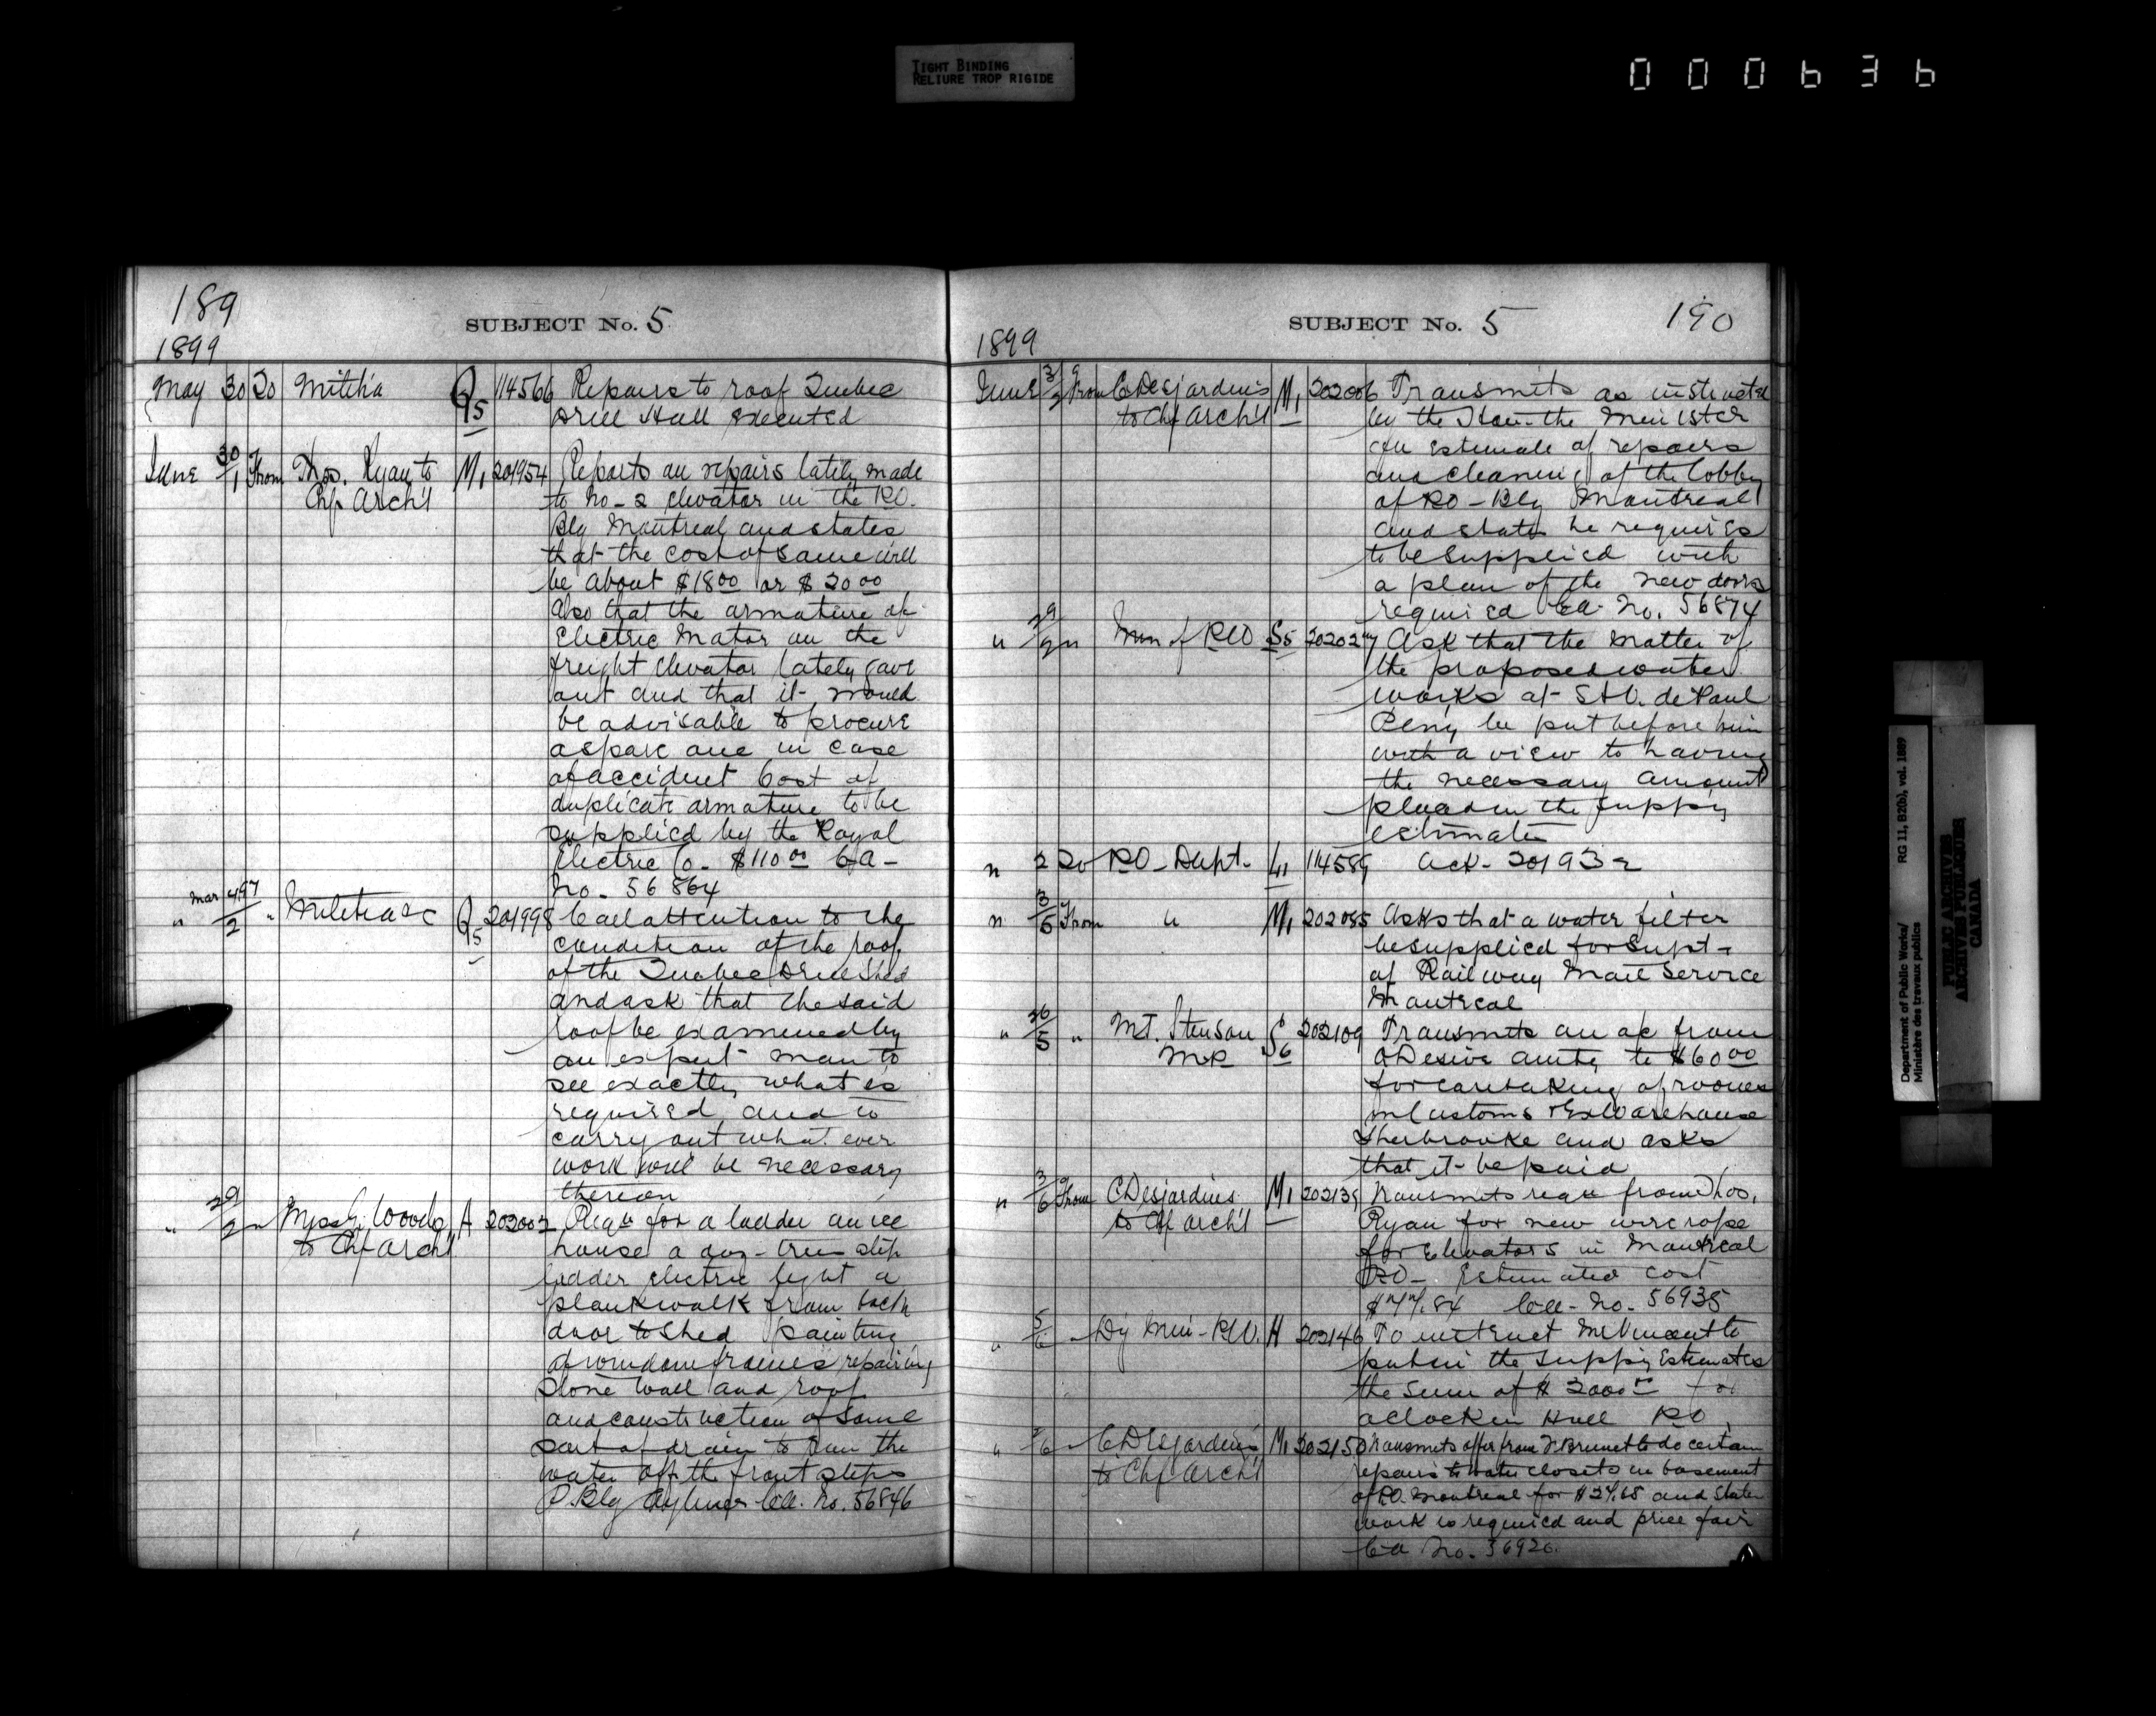 TIGHT BINDING
RELIURE TROP RIGIDE
000636
189
SUBJECT No. 5
1899
May 30 To Militia Q5 114566 Repairs to roof Quebec
Drill Hall executed
June 30/1 From Thos. Ryan to M1 201954 Reports on repairs lately made
Chf Arch't to No - 2 elevator in the P.O.
Blg Montreal and states
that the cost of same will
be about $18.00 or $20.00
Also that the armature of
Electric Motor on the
freight elevator lately gave
out and that it would
be advisable to procure
a spare one in case
of accident Cost of
duplicate armature to be
supplied by the Royal
Electric Co - $110.00 Ca -
No - 56864
" Mar 4 97/2 " Militia &c Q5 201998 Call attention to the
condition of the roof
of the Quebec Drill Shed
and ask that the said
roof be examined by
an expert man to
see exactly what is
required and to
carry out what ever
work will be necessary
thereon
" 29/2 " Miss G. Woods A 202002 Req for a ladder an ice
to Chf Arch't house a step
ladder electric light a
plank walk from back
door to shed painting
of window frames repairing
stone wall and roof
and construction of some
sort of drain to run the
water off the front steps
P. Blg Aylmer Ca. No. 56846
SUBJECT No. 5 190
1899
June 3/2 From C Desjardins M1 202006 Transmits as instructed
to Chf Arch't by the Hon. the Minister
an estimate of repairs
and cleaning of the lobby
of P.O - Blg Montreal
and states he requires
to be supplied with
a plan of the new doors
required Ca. No. 56874
" 29/2 " Min of P.W S5 202027 Ask that the matter of
the proposed water
works at St V. de Paul
Peny be put before him
with a view to having
the necessary amount
placed in the Suppy
estimates
" 2 To P.O - Dept - L1 114589 Ack - 201932
" 3/6 From " M1 202085 Asks that a water filter
be supplied for Supt -
of Railway Mail Service
Montreal
" 26/5 " MT. Stenson S6 202109 Transmits an ac from
M.P. amtg to $60.00
for caretaking of rooms
in Customs & Ex Warehouse
Sherbrooke and asks
that it be paid
" 3/6 From C Desjardins M1 202139 Transmits req from Thos.
to Chf Arch't Ryan for new wire rope
for Elevators in Montreal
P.O - Estimated cost
$77.84 Ca - No. 56935
" 5/6 - Dy Min - P.W. H 202146 To instruct Mr Vincent to
put in the Suppy Estimates
the sum of $2000 for
a clock in Hull P.O.
" /6 - C Desjardins M1 202150 Transmits offer from Brunet to do certain
to Chf Arch't repairs to water closets in basement
of P.O. Montreal for and states
work is required and price fair
Ca No. 56926.
Department of Public Works/
Ministère des travaux publics
RG 11, B2(b), vol. 1889
PUBLIC ARCHIVES
ARCHIVES PUBLIQUES
CANADA